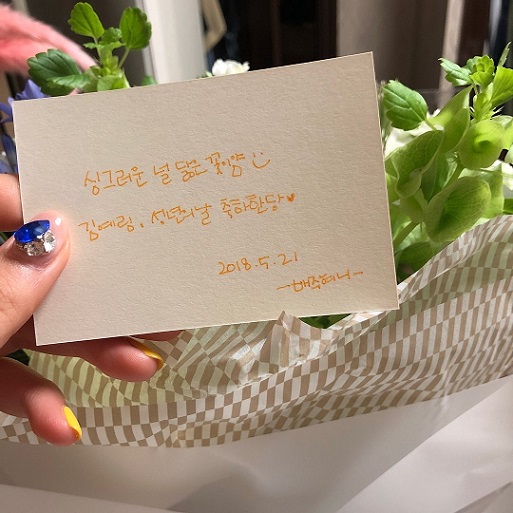 싱그러운 널 닮은 꽃이양 :)
김예림, 성년의날 축하한당♥
2018.5.21
~배주혀니~